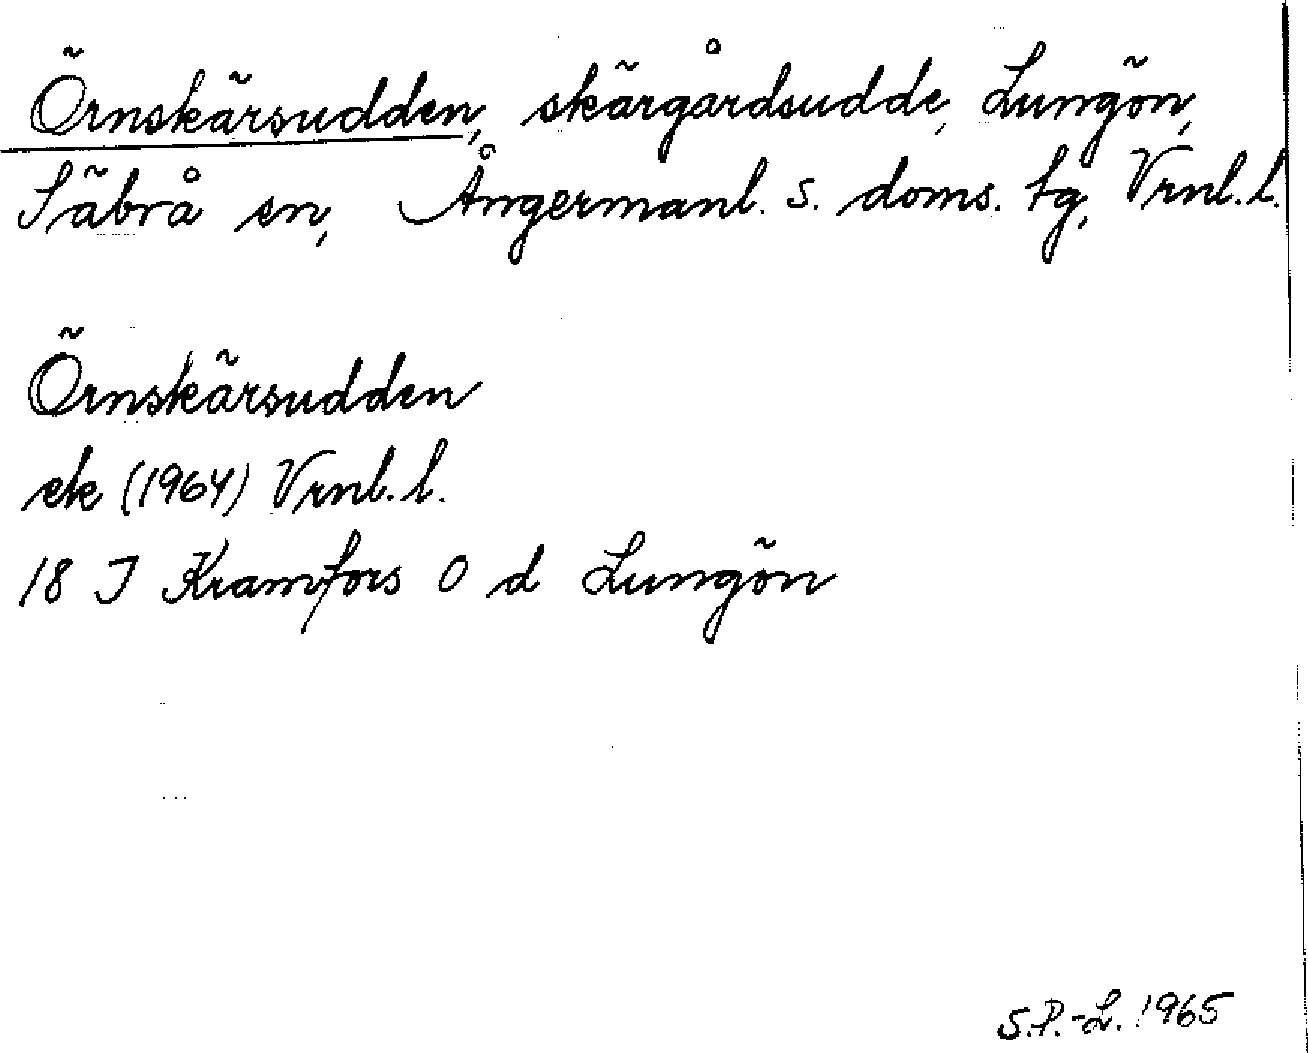 Örnskärsudden, skärgårdsudde, Lungön,
Säbrå sn, Ångermanl. s. doms. tg, Vrnl. l.
Örnskärsudden
ek (1964) Vrnl. l.
18 I Kramfors O d Lungön
S.P.-L. 1965